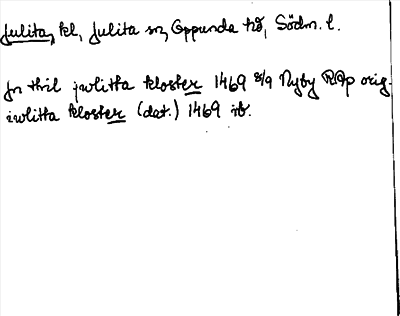 Julita, kl, Julita sn, Oppunda hd, Södm. l.
Jn thil jwlitta kloster 1469 8/9 Nyby RAp orig.
iwlitta kloster (dat.) 1469 ib.